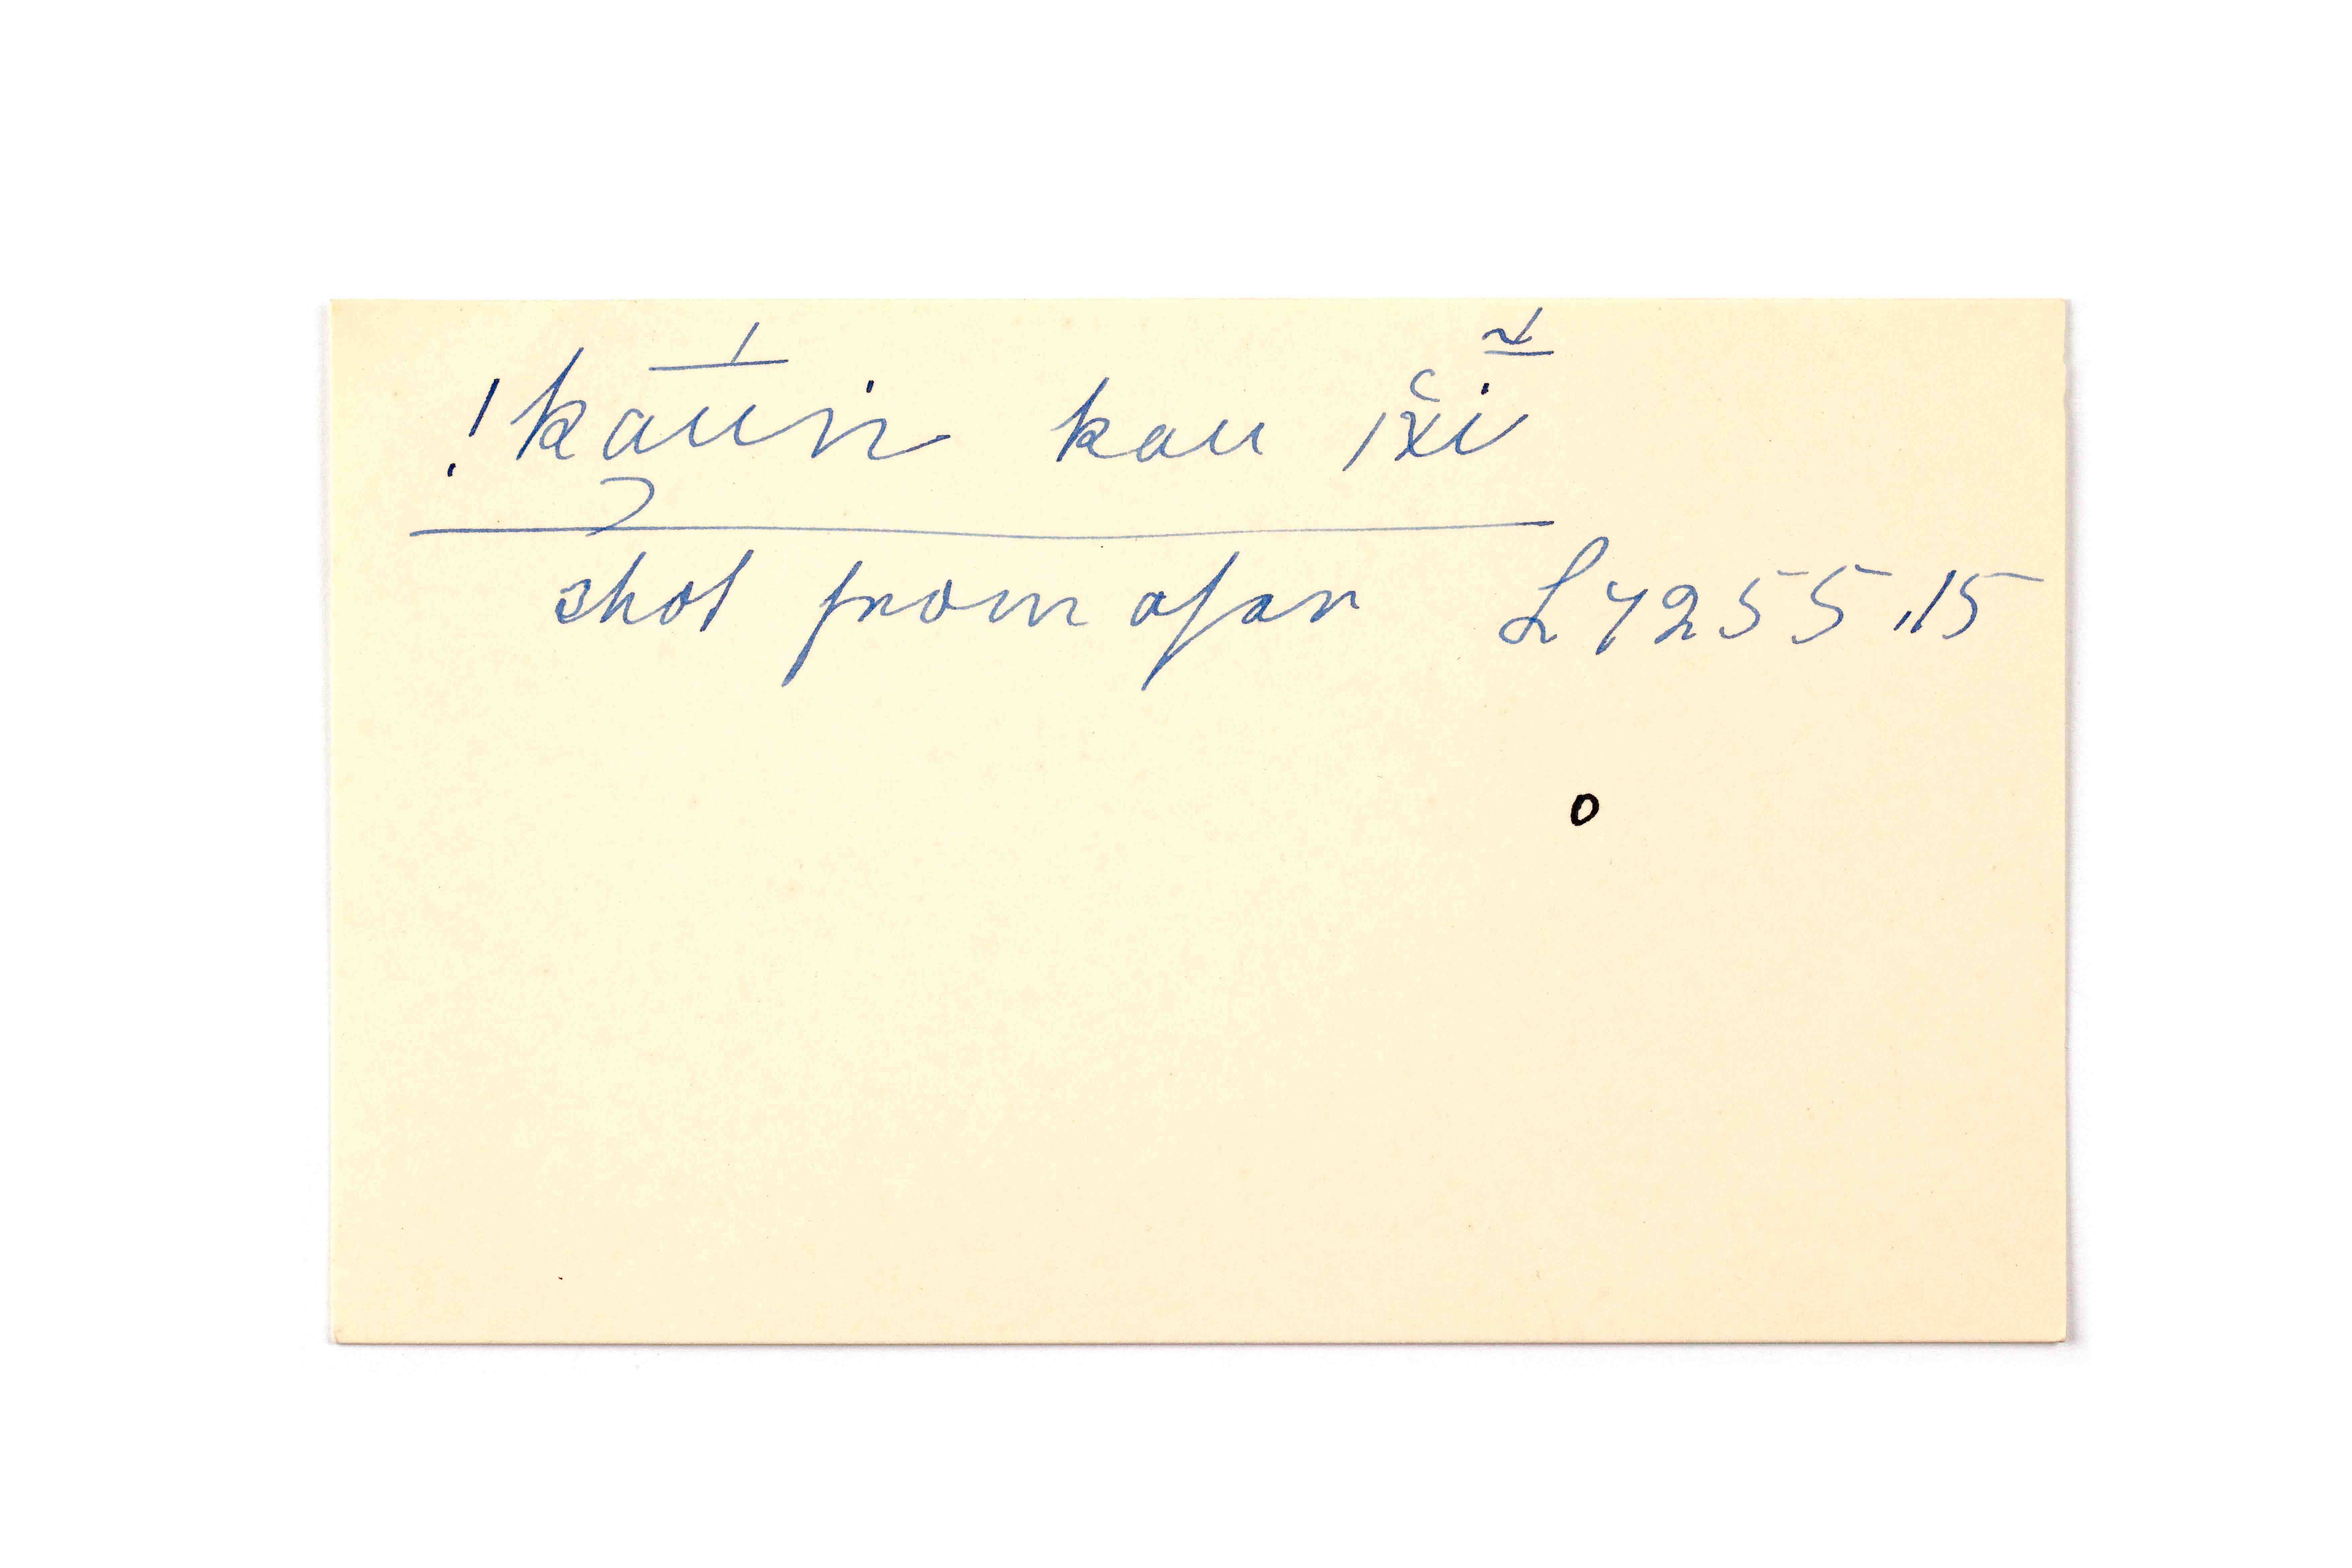 !kauin kau /xi
shot from afar L 7255.15
o